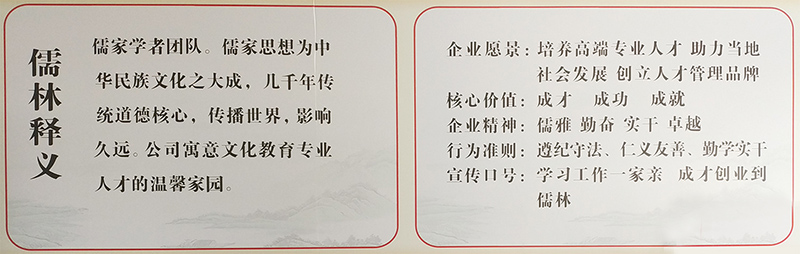 儒林释义
儒家学者团队。儒家思想为中
华民族文化之大成，几千年传
统道德核心，传播世界，影响
久远。公司寓意文化教育专业
人才的温馨家园。
企业愿景：培养高端专业人才 助力当地
社会发展 创立人才管理品牌
核心价值：成才 成功 成就
企业精神：儒雅 勤奋 实干 卓越
行为准则：遵纪守法、仁义友善、勤学实干
宣传口号：学习工作一家亲 成才创业到
儒林